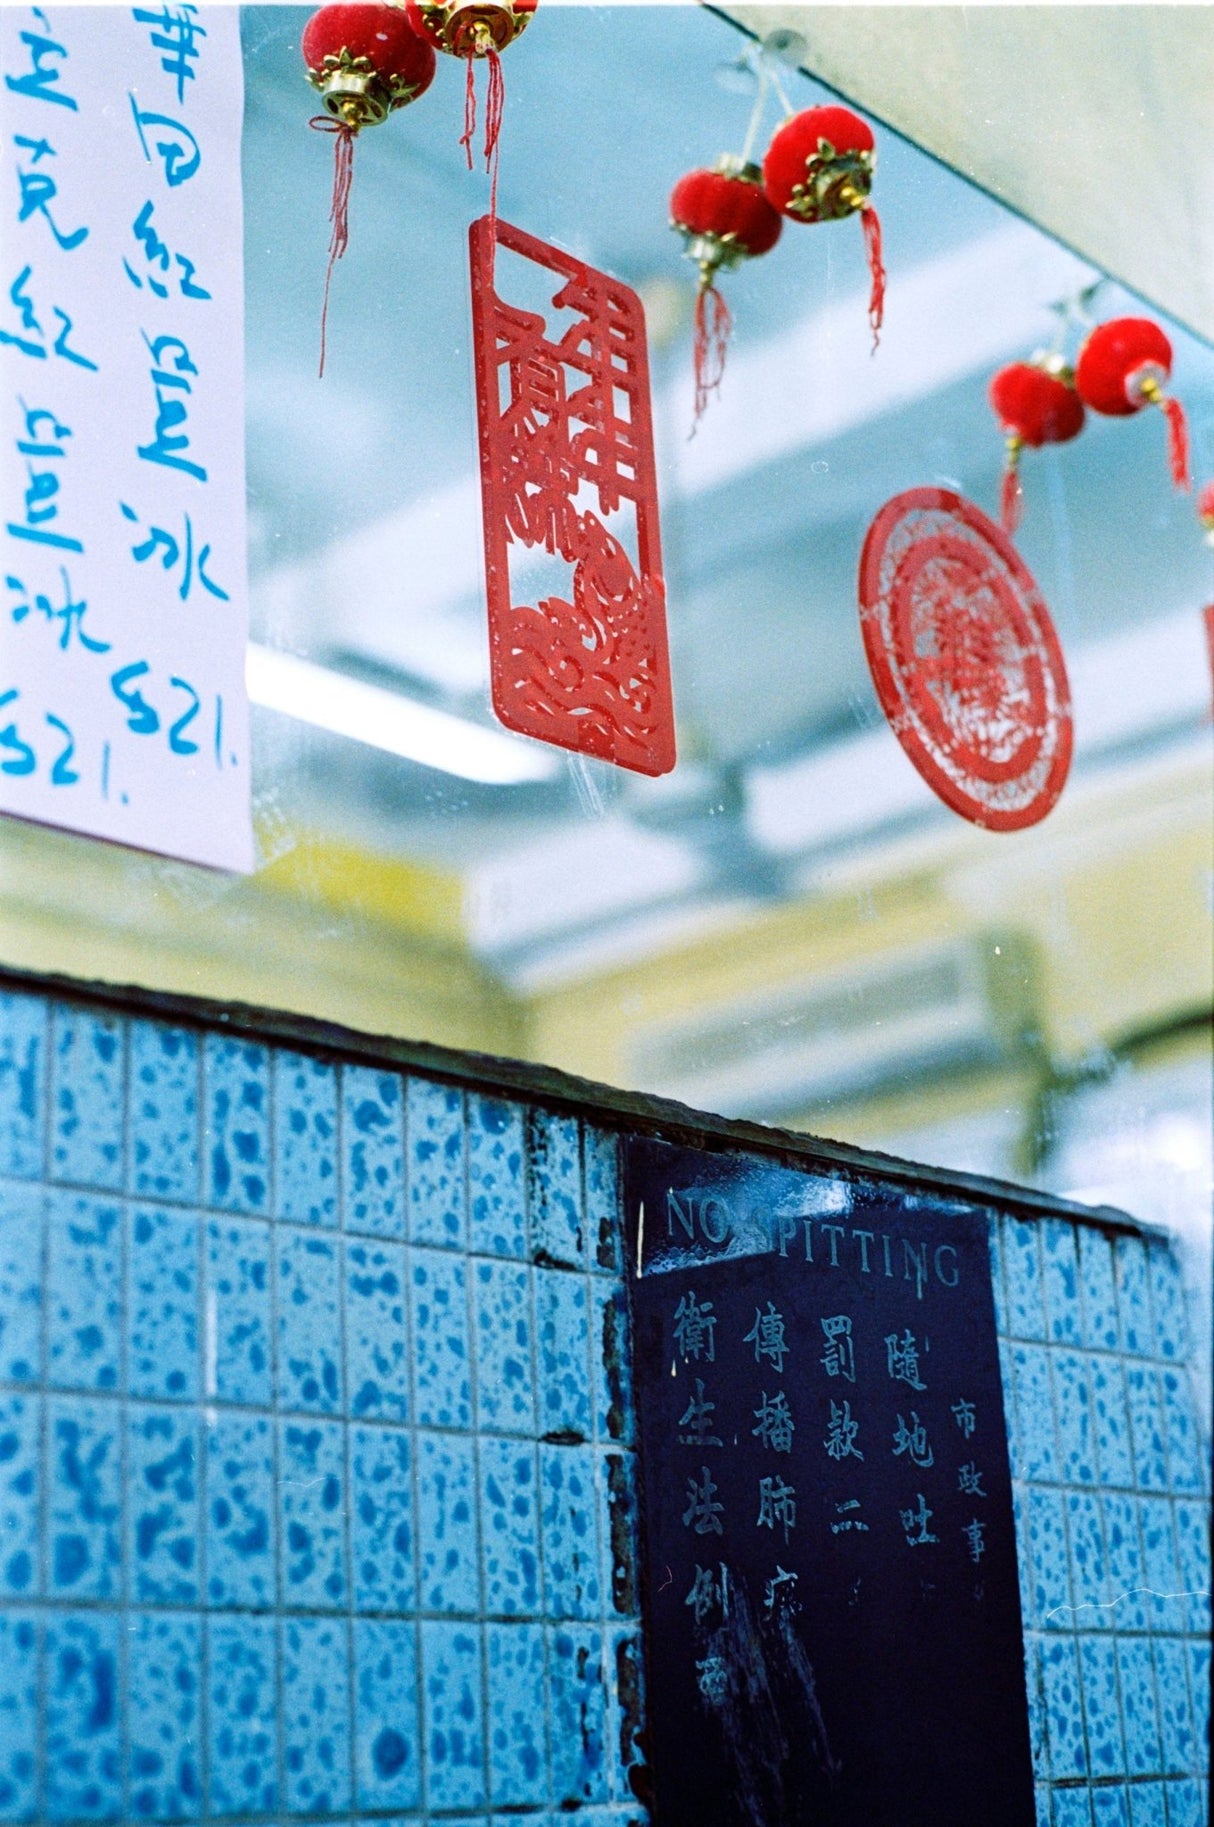 華田紅豆冰 $21.
立克紅豆冰 $21.
年年
有餘
NO SPITTING
市政事
隨地吐
罰款二
傳播肺癆
衛生法例